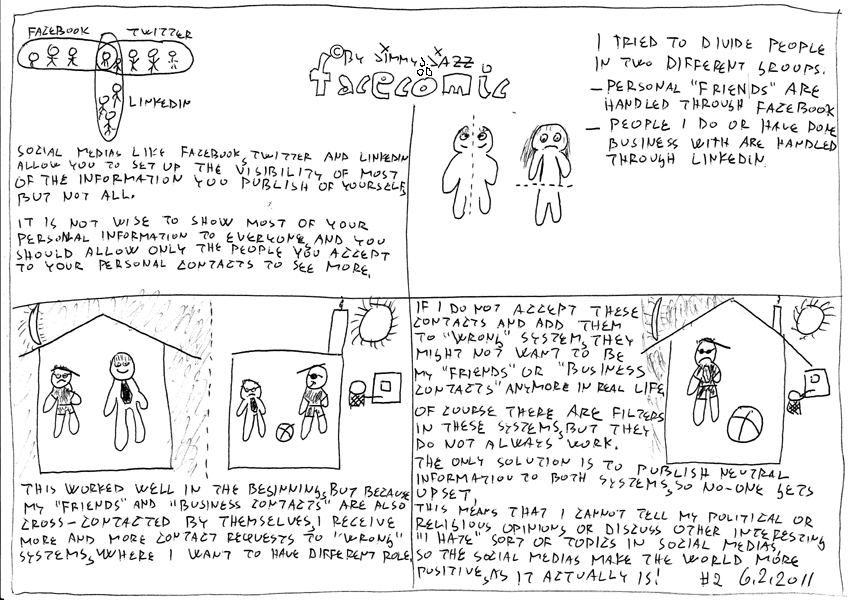 FACEBOOK TWITTER
LINKEDIN
© BY JIMMY JAZZ
facecomic
SOCIAL MEDIAS LIKE FACEBOOK, TWITTER AND LINKEDIN
ALLOW YOU TO SET UP THE VISIBILITY OF MOST
OF THE INFORMATION YOU PUBLISH OF YOURSELF,
BUT NOT ALL.
IT IS NOT WISE TO SHOW MOST OF YOUR
PERSONAL INFORMATION TO EVERYONE, AND YOU
SHOULD ALLOW ONLY THE PEOPLE YOU ACCEPT
TO YOUR PERSONAL CONTACTS TO SEE MORE.
I TRIED TO DIVIDE PEOPLE
IN TWO DIFFERENT GROUPS.
- PERSONAL "FRIENDS" ARE
HANDLED THROUGH FACEBOOK
- PEOPLE I DO OR HAVE DONE
BUSINESS WITH ARE HANDLED
THROUGH LINKEDIN.
THIS WORKED WELL IN THE BEGINNING, BUT BECAUSE
MY "FRIENDS" AND "BUSINESS CONTACTS" ARE ALSO
CROSS-CONTACTED BY THEMSELVES, I RECEIVE
MORE AND MORE CONTACT REQUESTS TO "WRONG"
SYSTEMS, WHERE I WANT TO HAVE DIFFERENT ROLE.
IF I DO NOT ACCEPT THESE
CONTACTS AND ADD THEM
TO "WRONG" SYSTEM, THEY
MIGHT NOT WANT TO BE
MY "FRIENDS" OR "BUSINESS
CONTACTS" ANYMORE IN REAL LIFE.
OF COURSE THERE ARE FILTERS
IN THESE SYSTEMS, BUT THEY
DO NOT ALWAYS WORK.
THE ONLY SOLUTION IS TO PUBLISH NEUTRAL
INFORMATION TO BOTH SYSTEMS, SO NO-ONE GETS
UPSET.
THIS MEANS THAT I CANNOT TELL MY POLITICAL OR
RELIGIOUS OPINIONS OR DISCUSS OTHER INTERESTING
"I HATE" SORT OF TOPICS IN SOCIAL MEDIAS,
SO THE SOCIAL MEDIAS MAKE THE WORLD MORE
POSITIVE, AS IT ACTUALLY IS! #2 6.2.2011